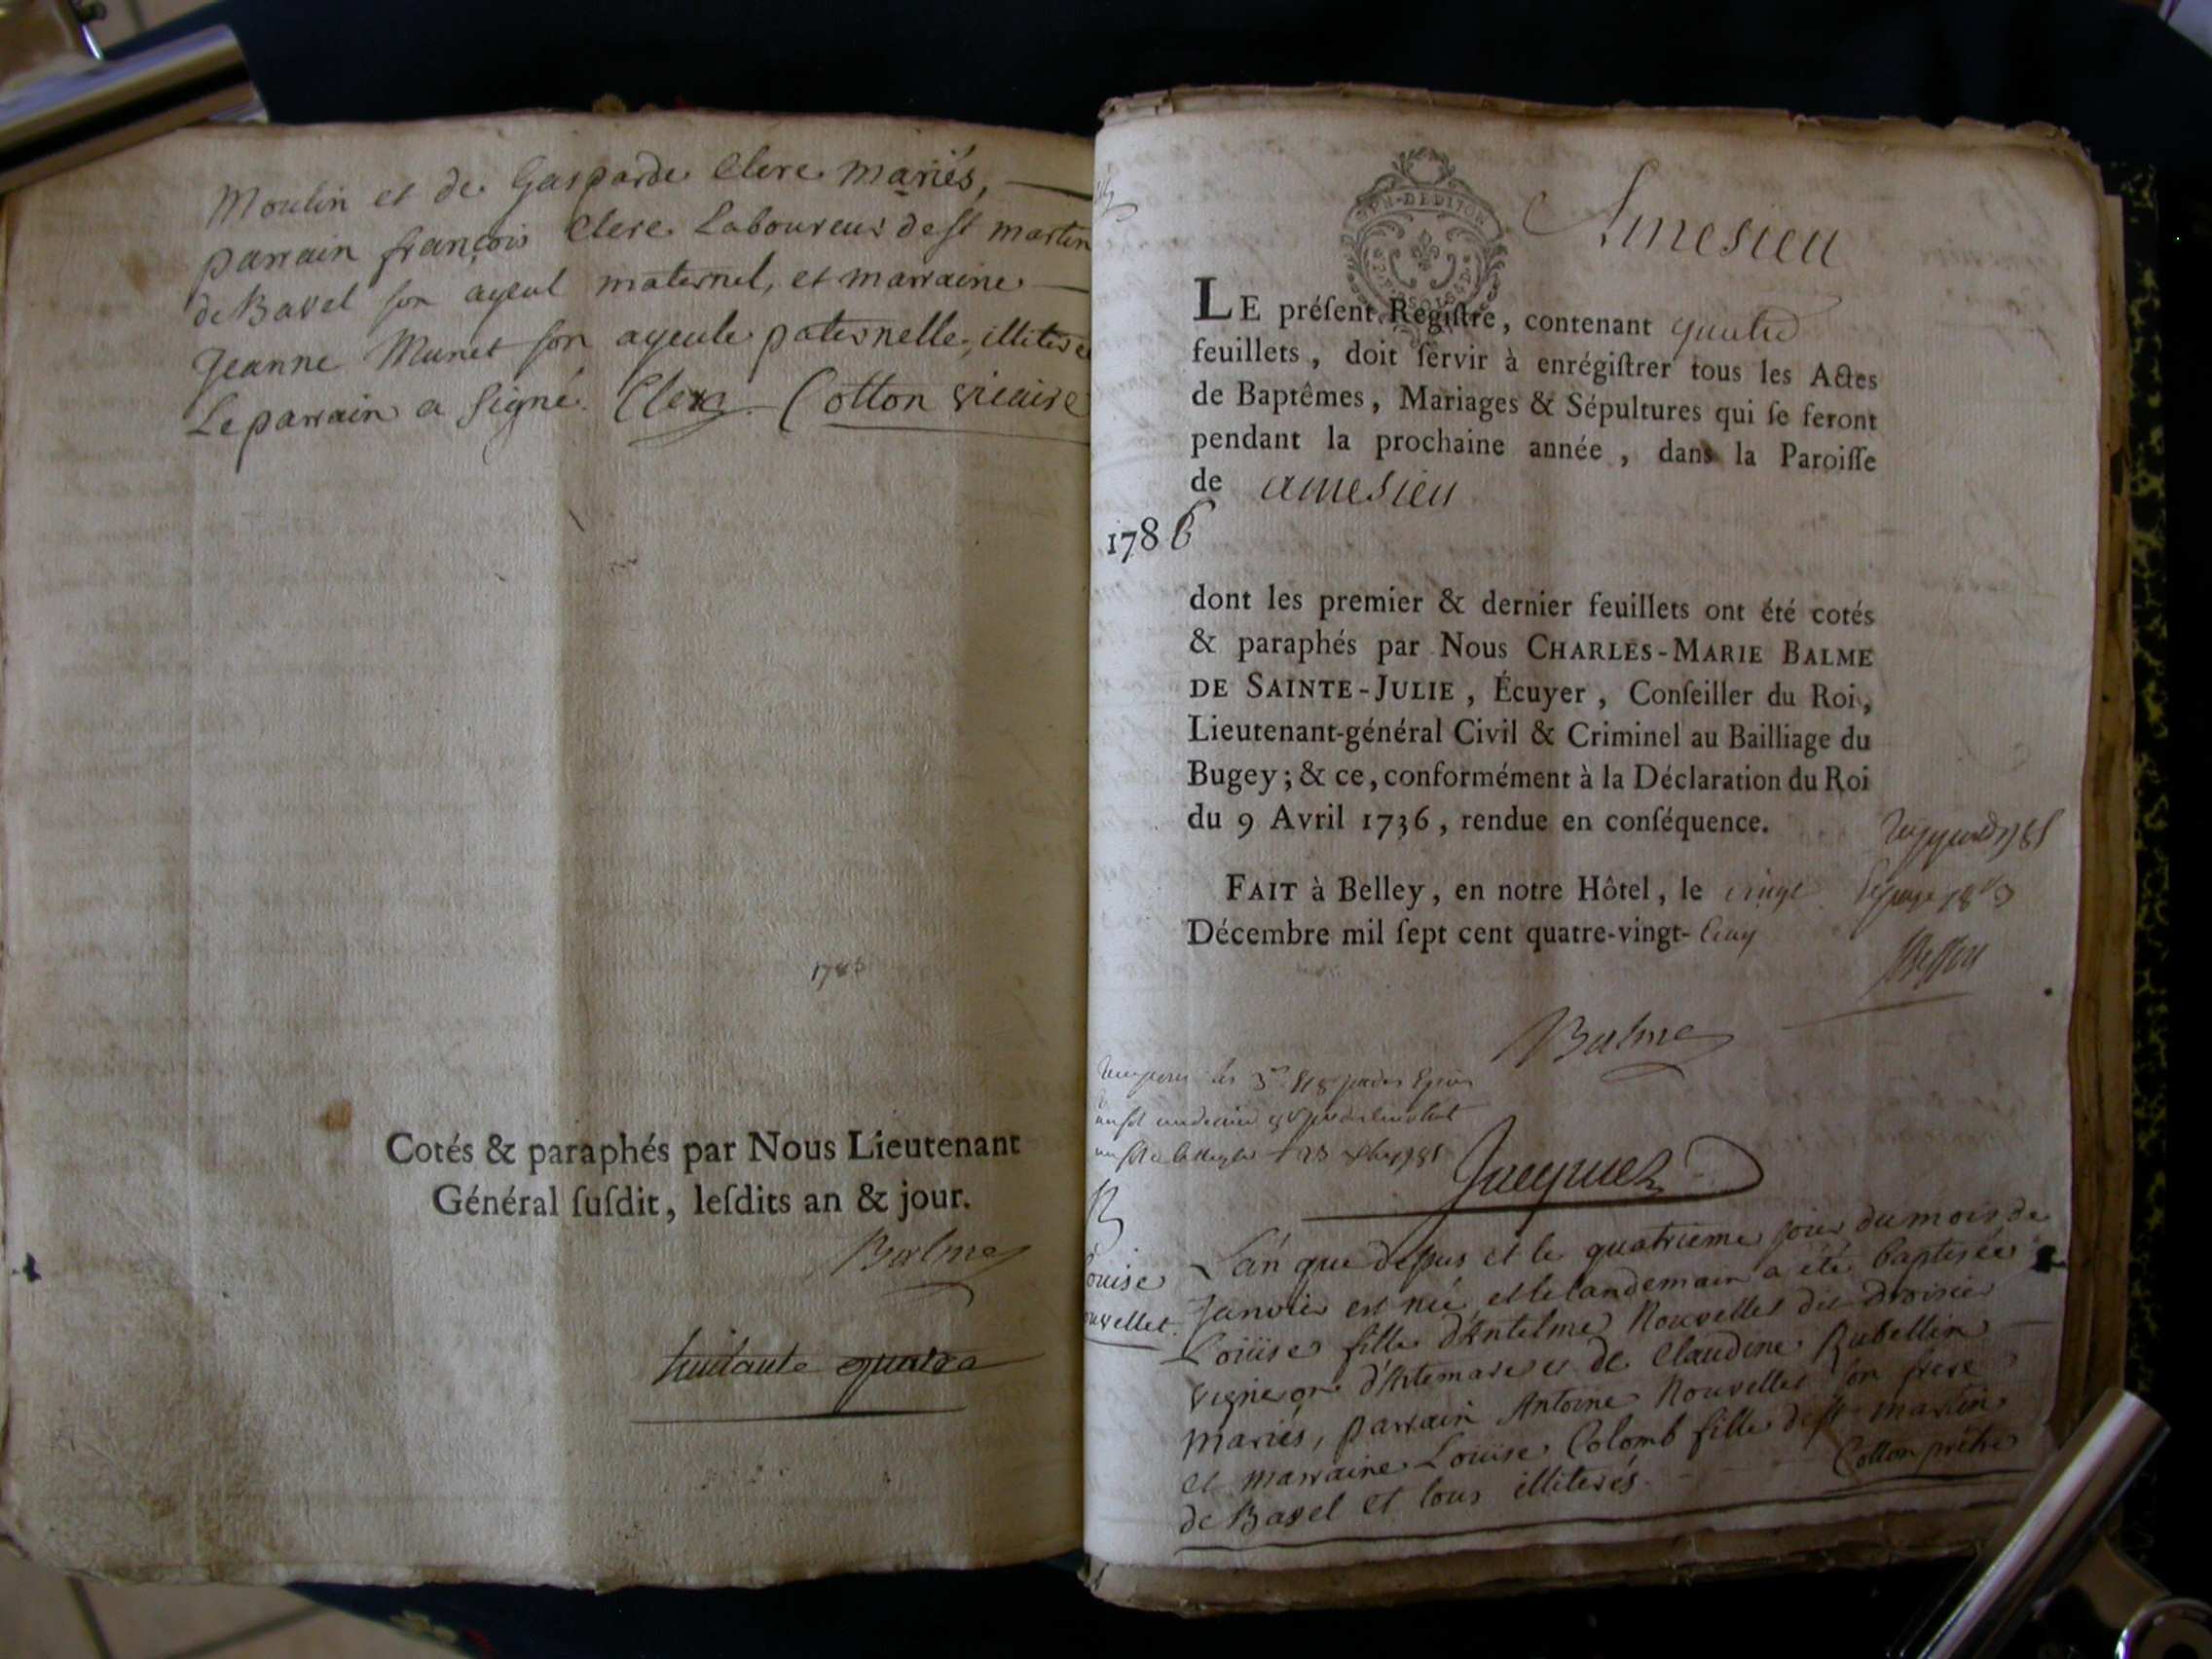 Moulin et de Gasparde Clerc mariés,
parrain françois Clerc Laboureur de st martin
de Bavel son ayeul maternel, et marraine
Jeanne Munet son ayeule paternelle, illiterée
Le parrain a signé. Clerc. Cotton vicaire
1785
Cotés & paraphés par Nous Lieutenant
Général ſuſdit, leſdits an & jour.
Balme
huitante quatre
Amesieu
LE préſent Regiſtre, contenant quatre
feuillets, doit ſervir à enrégiſtrer tous les Actes
de Baptêmes, Mariages & Sépultures qui ſe feront
pendant la prochaine année, dans la Paroiſſe
de amesieu
1786
dont les premier & dernier feuillets ont été cotés
& paraphés par Nous CHARLES-MARIE BALME
DE SAINTE-JULIE, Écuyer, Conſeiller du Roi,
Lieutenant-général Civil & Criminel au Bailliage du
Bugey; & ce, conformément à la Déclaration du Roi
du 9 Avril 1736, rendue en conſéquence.
FAIT à Belley, en notre Hôtel, le vingt
Décembre mil ſept cent quatre-vingt-cinq
Balme
Jacquet
Louise
Nouvellet.
L'an que dessus et le quatrieme jour du mois de
Janvier est née et le landemain a été baptisée
Louise fille d'Antelme Nouvellet dit droisier
vigneron d'Artemare et de Claudine Rubellin
mariés, parrain Antoine Nouvellet son frere
et marraine Louise Colomb fille de st martin
de Bavel et tous illiterés.
Cotton prêtre